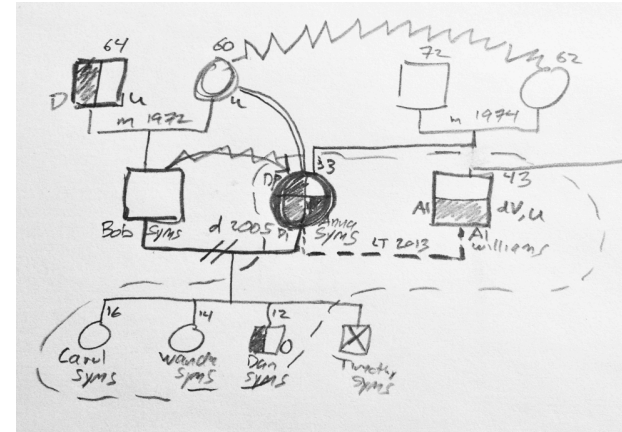 64
60
72
62
D
u
u
m 1972
m 1974
33
43
Bob Syms
d 2005
Syms
LT 2013
Al
dV, u
Al
williams
16
14
12
O
Carol
Syms
Wanda
Syms
Dan
Syms
Timothy
Syms